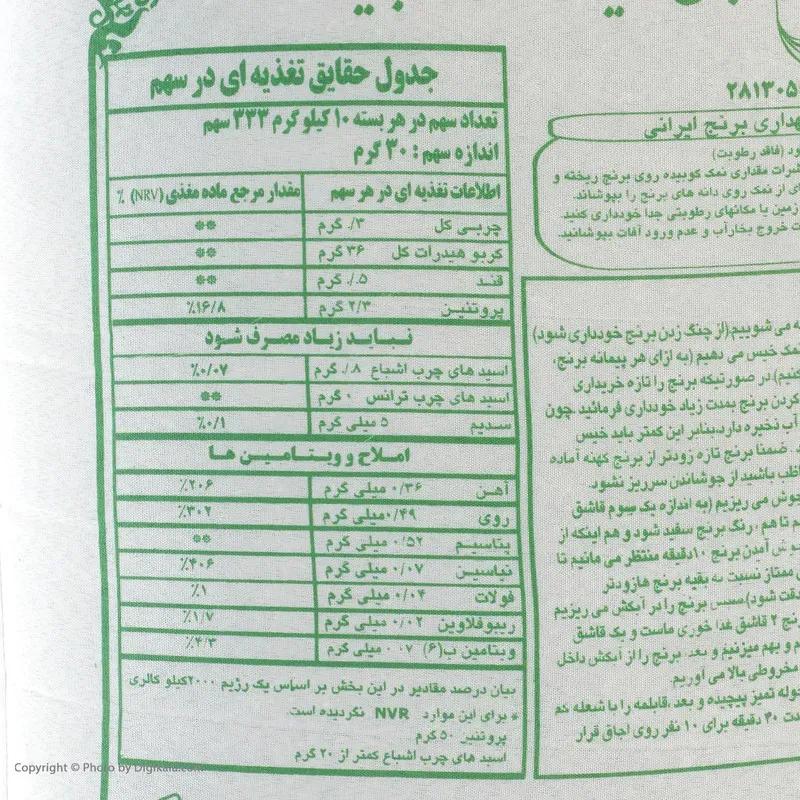 جدول حقایق تغذیه ای در سهم
تعداد سهم در هر بسته ۱۰ کیلوگرم ۳۳۳ سهم
اندازه سهم : ۳۰ گرم
اطلاعات تغذیه ای در هر سهم مقدار مرجع ماده مغذی (NRV) ٪
چربی کل ۳/. گرم **
کربو هیدرات کل ۳۶ گرم **
قند ۵./. گرم **
پروتئین ۲/۳ گرم ٪۱۶/۸
نباید زیاد مصرف شود
اسید های چرب اشباع ۸/. گرم ٪۰/۰۷
اسید های چرب ترانس ۰ گرم **
سدیم ۵ میلی گرم ٪۰/۱
املاح و ویتامین ها
آهن ۰/۳۶ میلی گرم ٪۲۰۶
روی ۰/۴۹ میلی گرم ٪۳۰۲
پتاسیم ۰/۵۲ میلی گرم **
نیاسین ۰/۰۷ میلی گرم ٪۴۰۶
فولات ۰/۰۴ میلی گرم ٪۱
ریبوفلاوین ۰/۰۲ میلی گرم ٪۱/۷
ویتامین ب(۶) ۰۰۷ میلی گرم ٪۴/۳
بیان درصد مقادیر در این بخش بر اساس یک رژیم ۲۰۰۰کیلو کالری
* برای این موارد NVR نگردیده است.
پروتئین ۵۰ گرم
اسید های چرب اشباع کمتر از ۲۰ گرم
۲۸۱۳۰۵
هداری برنج ایرانی
ود (فاقد رطوبت)
شرات مقداری نمک کوبیده روی برنج ریخته و
ای از نمک روی دانه های برنج را بپوشاند.
زمین یا مکانهای رطوبتی جدا خودداری کنید
ت خروج بخارآب و عدم ورود آفات بپوشانید.
ه می شوییم(از چنگ زدن برنج خودداری شود)
نمک خیس می دهیم (به ازای هر پیمانه برنج،
کنیم) در صورتیکه برنج را تازه خریداری
کردن برنج بمدت زیاد خودداری فرمائید چون
آب نخیره دارد،بنابر این کمتر باید خیس
. ضمنا برنج تازه زودتر از برنج کهنه آماده
اظب باشید از جوشاندن سرریز نشود.
جوش می ریزیم (به اندازه یک سوم قاشق
م تا هم ، رنگ برنج سفید شود و هم اینکه از
جوش آمدن برنج ۱۰دقیقه منتظر می مانیم تا
ممتاز نسبت به بقیه برنج هازودتر
قت شود) سپس برنج را در آبکش می ریزیم
رنج ۲ قاشق غذا خوری ماست و یک قاشق
م و بهم میزنیم و بعد، برنج را از آبکش داخل
مخروطی بالا می آوریم.
حوله تمیز پیچیده و بعد، قابلمه را با شعله کم
دت ۳۰ دقیقه برای ۱۰ نفر روی اجاق قرار
Copyright © Photo by Digikala.com